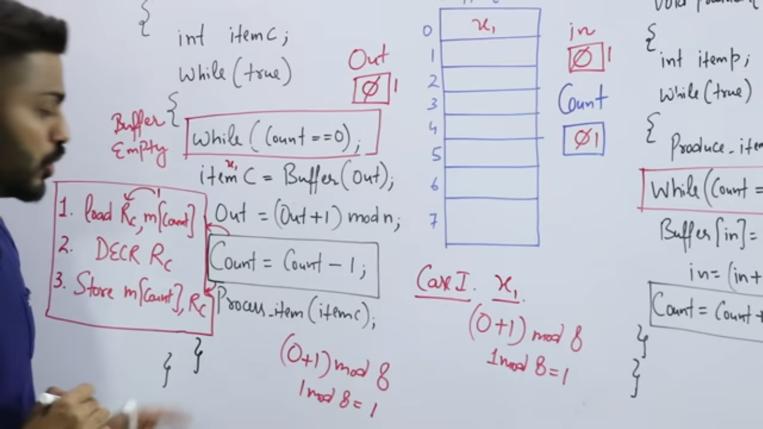 {
int itemc;
while(true)
{
Buffer
Empty
while(Count==0);
x₁
itemC = Buffer(Out);
Out = (Out+1) mod n;
Count = Count - 1;
Process_item(itemc);
}
}
1. load Rc, m[Count]
2. DECR Rc
3. Store m[Count], Rc
(0+1) mod 8
1 mod 8 = 1
Out
0 1
0
1
2
3
4
5
6
7
x₁
in
0 1
Count
0 1
Case I. x₁
(0+1) mod 8
1 mod 8 = 1
void
{
int itemp;
while(true)
{
Produce_item
While(Count =
Buffer[in] =
in = (in +
Count = Count +
}
}